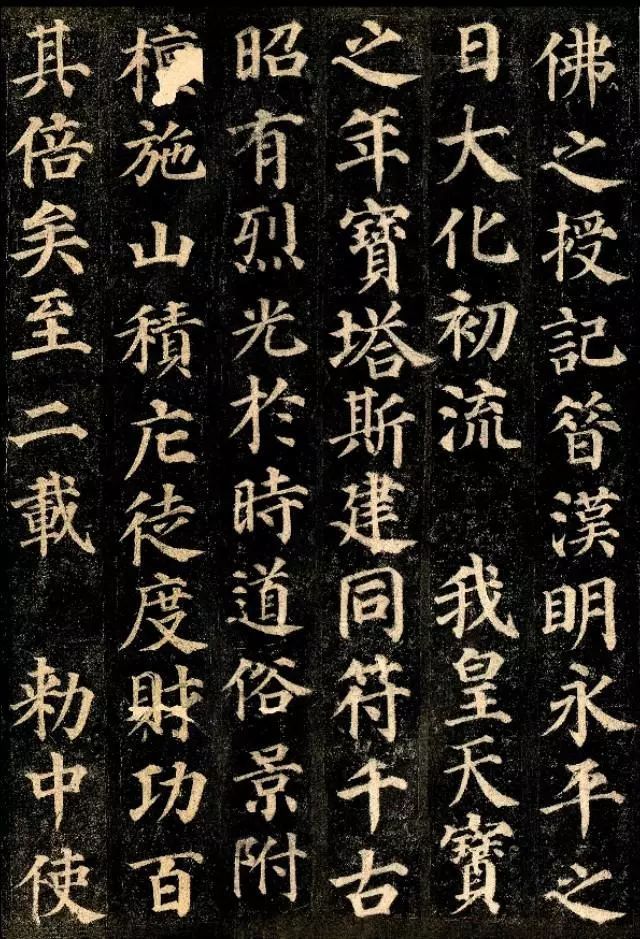 佛之授記昔漢明永平之
日大化初流　我皇天寶
之年寶塔斯建同符千古
昭有烈光於時道俗景附
檀施山積庀徒度財功百
其倍矣至二載　勅中使